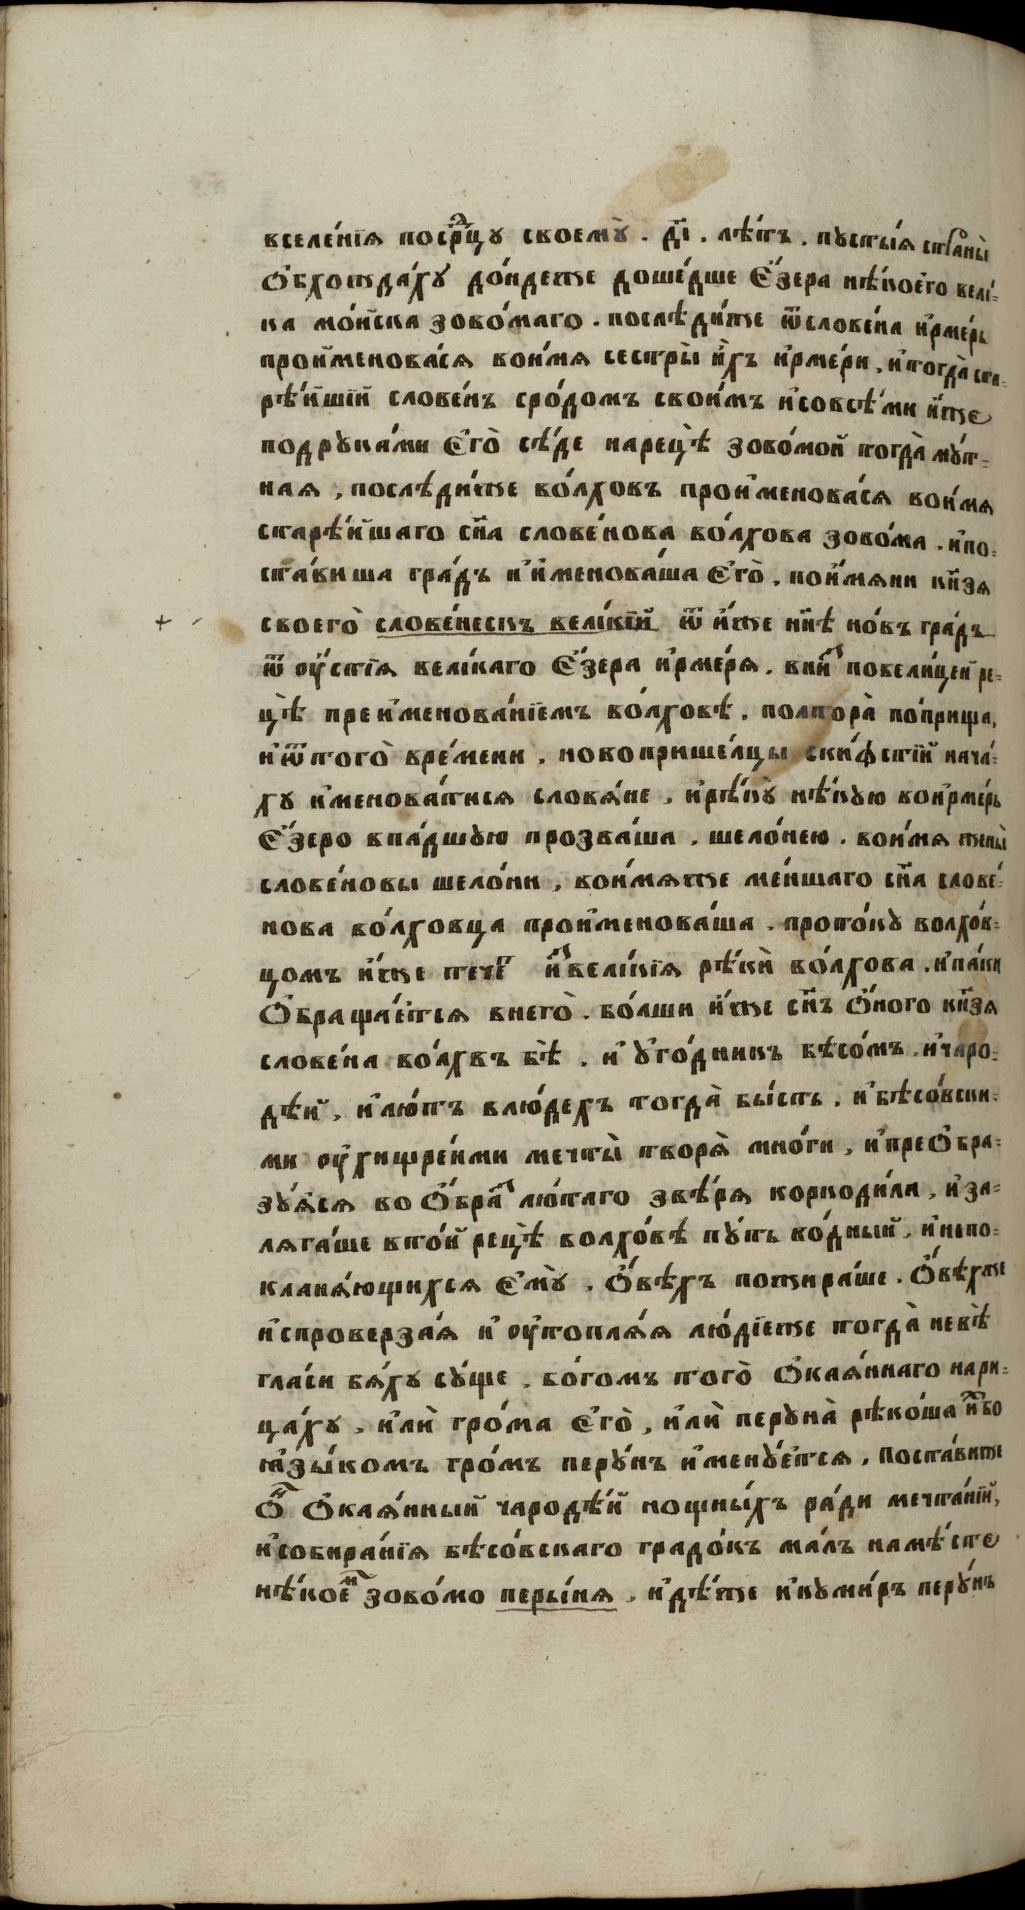 вселе́нїѧ посрⷣцу своемꙋ̀ . д҃ı . лѣ́тъ . пꙋсты́ѧ страны̀
ѻ҆бхождахꙋ̀ до́ндеже доше́дше Е҆́зера нѣ́коегѡ вели́-
ка мо́йска зово́маго . послѣди́же ѿ слове́на и҆рме́рь
проименова́сѧ во и́мѧ сестры̀ и҆́хъ и҆рме́ри , и҆ тогда̀ ста-
рѣ́йшїй слове́нъ сро́домъ свои́мъ и҆ совсѣ́ми и҆́же
под рꙋка́ми Е҆гѡ̀ сѣ́де на рецѣ̀ зово́мой тогда̀ мꙋ́т-
наѧ , послѣди́же во́лховъ проименова́сѧ во и́мѧ
старѣ́йшаго сн҃а слове́нова во́лхова зово́ма . и҆ по-
ста́виша гра́дъ и҆ и҆менова́ша Е҆гѡ̀ , по и҆́мѧни кн҃зѧ
своегѡ̀ слове́нескъ вели́кїй ѿ и҆́же нн҃ѣ но́въ гра́дъ
ѿ оу҆́стїѧ вели́каго Е҆́зера и҆рме́рѧ . вни́зъ по вели́цей ре-
цѣ̀ преименова́нїемъ во́лховѣ , полтора̀ по́прища ,
и҆ ѿ тогѡ̀ вре́мени . новоприше́лцы ски́фстїй нача́-
хꙋ и҆менова́тисѧ словѧ́не , и҆ рѣ́кꙋ̀ нѣ́кꙋю во и҆рме́рь
Е҆́зеро впа́дшꙋю прозва́ша . шело́нею . во и́мѧ жены̀
слове́новы шело́ни , во и́мѧже ме́ншаго сн҃а слове́-
нова во́лховца проименова́ша . прото́кꙋ волхо́в-
цомъ и҆́же тече́тъ и҆з вели́кїѧ рѣ́ки̇ во́лхова . и҆ па́ки
ѻ҆браща́етсѧ в негѡ̀ . бо́лши и҆́же сн҃ъ ѻ҆́ного кн҃зѧ
слове́на во́лхвъ бѣ̀ . и҆ ꙋ҆го́дникъ бѣсо́мъ . и҆ чаро-
дѣ́й , и҆ лю́тъ в лю́дехъ тогда̀ бы́сть . и҆ бѣсо́вски-
ми оу҆хищре́ими мечты̀ творѧ̀ мно́ги , и҆ преѻ҆бра-
зꙋ́ѧсѧ во ѻ҆́браз лю́таго звѣ́рѧ коркоди́ла , и҆ за-
лѧга́ше в то́й рецѣ̀ волхо́вѣ пꙋ́ть во́дный , и҆ непо-
кланѧ́ющихсѧ Е҆мꙋ̀ , ѻ҆́вѣхъ пожира́ше . ѻ҆́вѣхже
и҆спроверза́ѧ и҆ оу҆топлѧ́ѧ лю́дїеже тогда̀ невѣ̀
гла́си бѧ́хꙋ сꙋ́ще . бо́гомъ тогѡ̀ ѻ҆каѧ́ннаго нари-
ца́хꙋ , и҆лѝ гро́ма Е҆гѡ̀ , и҆лѝ перꙋна̀ рѣко́ша и҆́х бо
ꙗ҆зы́комъ гро́мъ перꙋ́нъ и҆менꙋ́етсѧ . поста́виже
ѻ҆́н ѻ҆каѧ́нный чародѣ́й нощны́хъ ра́ди мечта́нїй ,
и҆ собира́нїѧ бѣсо́вскаго градо́къ ма́лъ на мѣ́сте
нѣ́коем зово́мо перы́нѧ , и҆дѣ́же и҆ кꙋми́ръ перꙋ́нъ